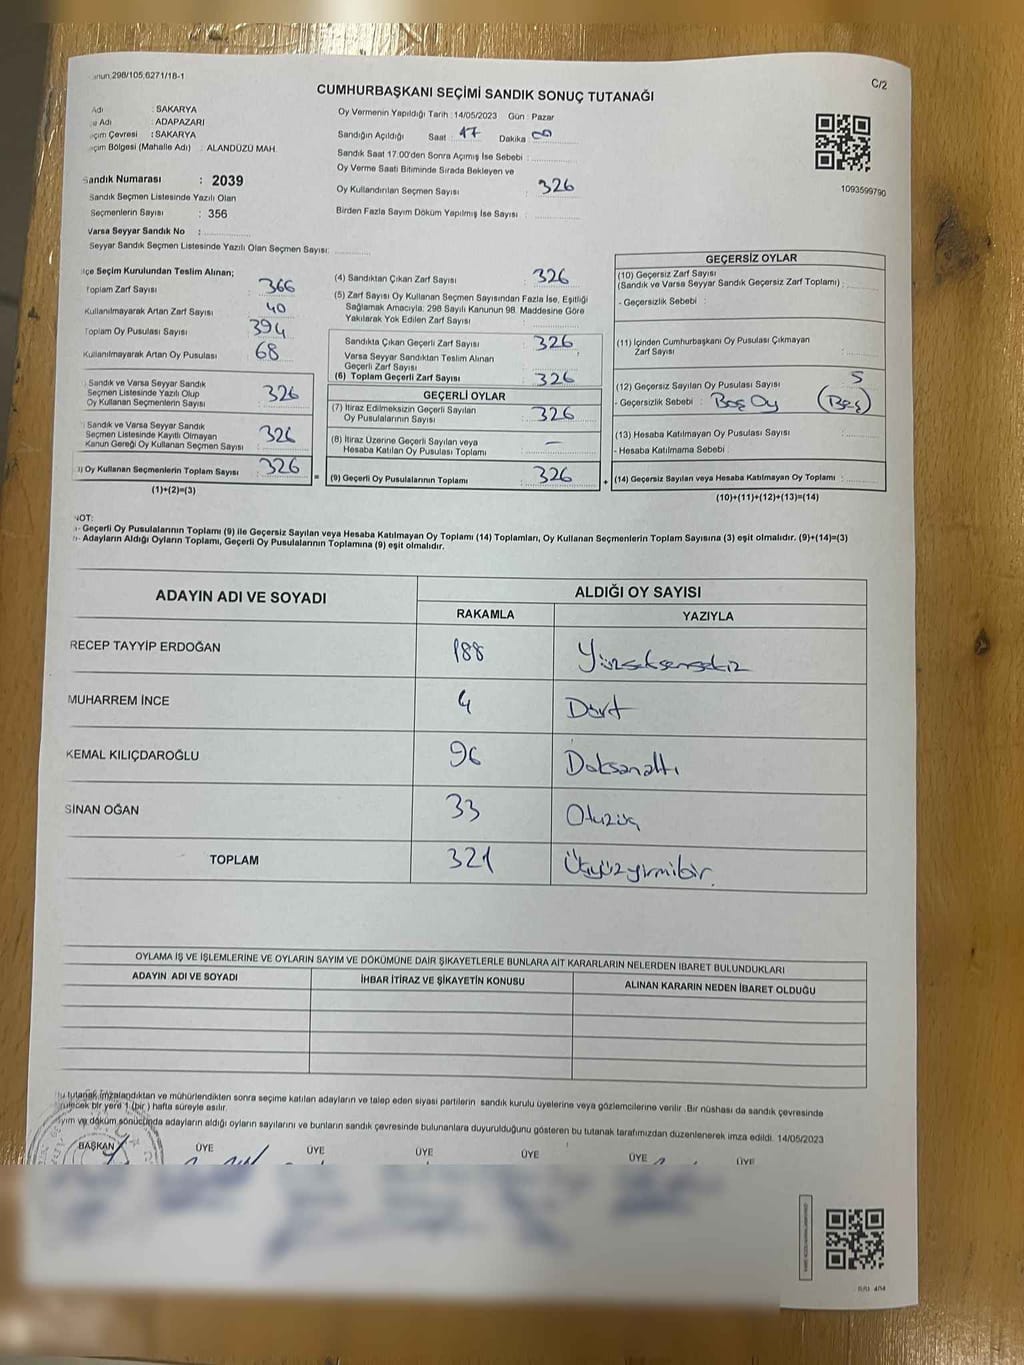 298/105,6271/18-1
C/2
CUMHURBAŞKANI SEÇİMİ SANDIK SONUÇ TUTANAĞI
Adı : SAKARYA
Adı : ADAPAZARI
Çevresi : SAKARYA
Bölgesi (Mahalle Adı) : ALANDÜZÜ MAH.
Sandık Numarası : 2039
Sandık Seçmen Listesinde Yazılı Olan
Seçmenlerin Sayısı : 356
Varsa Seyyar Sandık No :
Seyyar Sandık Seçmen Listesinde Yazılı Olan Seçmen Sayısı:
Oy Vermenin Yapıldığı Tarih : 14/05/2023 Gün : Pazar
Sandığın Açıldığı Saat : 17 Dakika : 00
Sandık Saat 17.00'den Sonra Açımış İse Sebebi :
Oy Verme Saati Bitiminde Sırada Bekleyen ve
Oy Kullandırılan Seçmen Sayısı : 326
Birden Fazla Sayım Döküm Yapılmış İse Sayısı :
1093599790
İlçe Seçim Kurulundan Teslim Alınan;
Toplam Zarf Sayısı : 366
Kullanılmayarak Artan Zarf Sayısı : 40
Toplam Oy Pusulası Sayısı : 394
Kullanılmayarak Artan Oy Pusulası : 68
Sandık ve Varsa Seyyar Sandık
Seçmen Listesinde Yazılı Olup
Oy Kullanan Seçmenlerin Sayısı : 326
Sandık ve Varsa Seyyar Sandık
Seçmen Listesinde Kayıtlı Olmayan
Kanun Gereği Oy Kullanan Seçmen Sayısı : 326
Oy Kullanan Seçmenlerin Toplam Sayısı : 326
(1)+(2)=(3)
(4) Sandıktan Çıkan Zarf Sayısı : 326
(5) Zarf Sayısı Oy Kullanan Seçmen Sayısından Fazla İse, Eşitliği
Sağlamak Amacıyla; 298 Sayılı Kanunun 98. Maddesine Göre
Yakılarak Yok Edilen Zarf Sayısı :
Sandıkta Çıkan Geçerli Zarf Sayısı : 326
Varsa Seyyar Sandıktan Teslim Alınan
Geçerli Zarf Sayısı :
(6) Toplam Geçerli Zarf Sayısı : 326
GEÇERLİ OYLAR
(7) İtiraz Edilmeksizin Geçerli Sayılan
Oy Pusulalarının Sayısı : 326
(8) İtiraz Üzerine Geçerli Sayılan veya
Hesaba Katılan Oy Pusulası Toplamı : —
= (9) Geçerli Oy Pusulalarının Toplamı : 326
GEÇERSİZ OYLAR
(10) Geçersiz Zarf Sayısı
(Sandık ve Varsa Seyyar Sandık Geçersiz Zarf Toplamı) :
- Geçersizlik Sebebi :
(11) İçinden Cumhurbaşkanı Oy Pusulası Çıkmayan
Zarf Sayısı :
(12) Geçersiz Sayılan Oy Pusulası Sayısı : 5
- Geçersizlik Sebebi : Boş Oy (Beş)
(13) Hesaba Katılmayan Oy Pusulası Sayısı :
- Hesaba Katılmama Sebebi :
+ (14) Geçersiz Sayılan veya Hesaba Katılmayan Oy Toplamı :
(10)+(11)+(12)+(13)=(14)
NOT:
a- Geçerli Oy Pusulalarının Toplamı (9) ile Geçersiz Sayılan veya Hesaba Katılmayan Oy Toplamı (14) Toplamları, Oy Kullanan Seçmenlerin Toplam Sayısına (3) eşit olmalıdır. (9)+(14)=(3)
b- Adayların Aldığı Oyların Toplamı, Geçerli Oy Pusulalarının Toplamına (9) eşit olmalıdır.
ADAYIN ADI VE SOYADI
ALDIĞI OY SAYISI
RAKAMLA YAZIYLA
RECEP TAYYİP ERDOĞAN 188 Yüzseksensekiz
MUHARREM İNCE 4 Dört
KEMAL KILIÇDAROĞLU 96 Doksanaltı
SİNAN OĞAN 33 Otuzüç
TOPLAM 321 Üçyüzyirmibir.
OYLAMA İŞ VE İŞLEMLERİNE VE OYLARIN SAYIM VE DÖKÜMÜNE DAİR ŞİKAYETLERLE BUNLARA AİT KARARLARIN NELERDEN İBARET BULUNDUKLARI
ADAYIN ADI VE SOYADI İHBAR İTİRAZ VE ŞİKAYETİN KONUSU ALINAN KARARIN NEDEN İBARET OLDUĞU
Bu tutanak imzalandıktan ve mühürlendikten sonra seçime katılan adayların ve talep eden siyasi partilerin sandık kurulu üyelerine veya gözlemcilerine verilir .Bir nüshası da sandık çevresinde
bir yere 1 (bir ) hafta süreyle asılır.
ve döküm sonucunda adayların aldığı oyların sayılarını ve bunların sandık çevresinde bulunanlara duyurulduğunu gösteren bu tutanak tarafımızdan düzenlenerek imza edildi. 14/05/2023
BAŞKAN ÜYE ÜYE ÜYE ÜYE ÜYE ÜYE